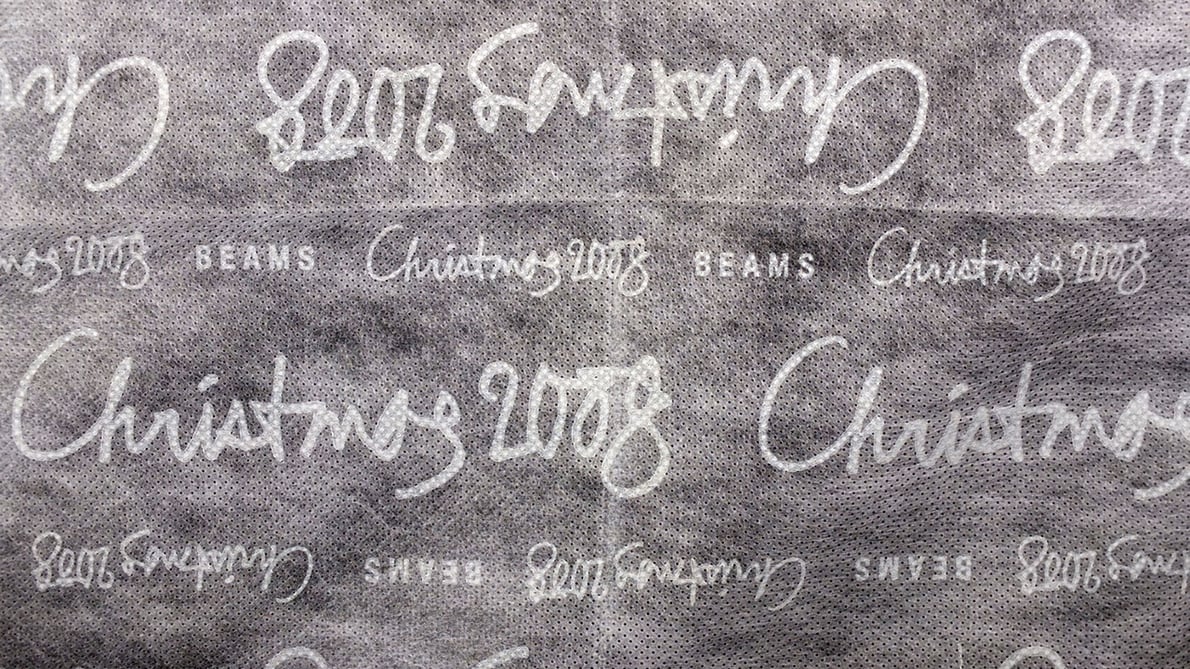 Christmas 2008 Christmas 2008
Christmas 2008 BEAMS Christmas 2008 BEAMS Christmas 2008
Christmas 2008 Christmas
Christmas 2008 BEAMS Christmas 2008 BEAMS Christmas 2008